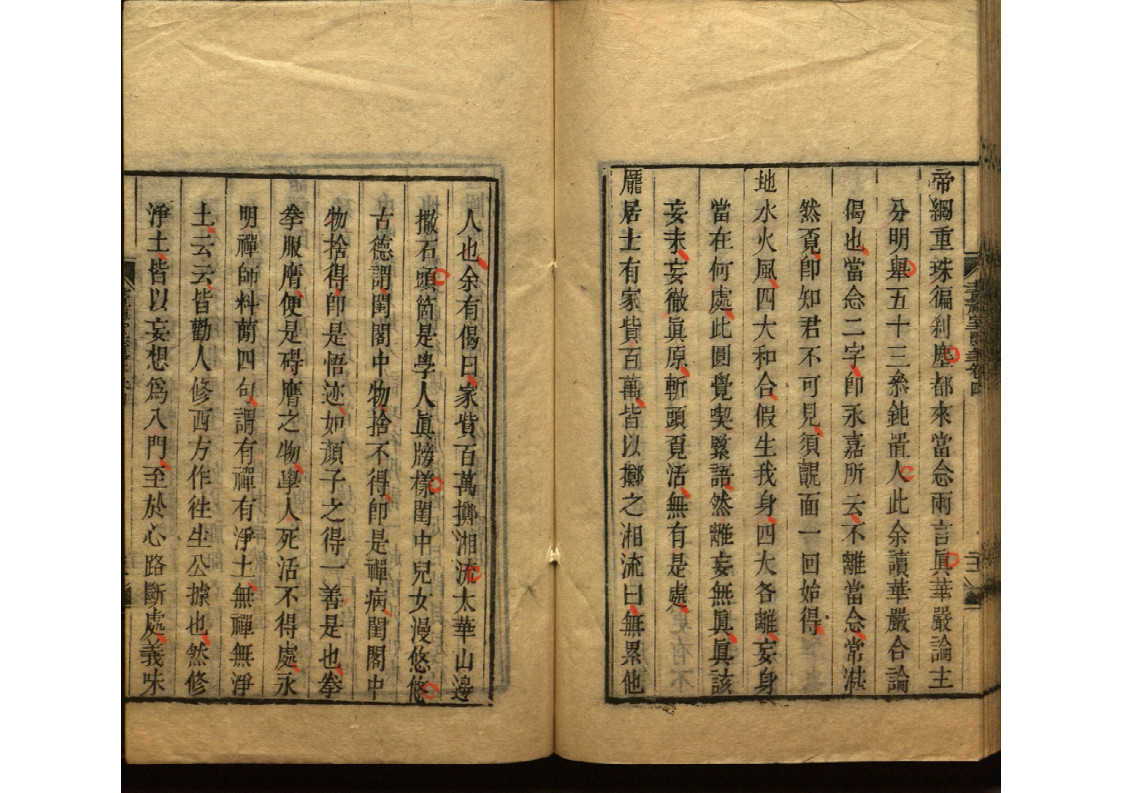 帝網重珠徧刹塵都來當念兩言眞華嚴論主
分明舉五十三叅鈍置人此余讀華嚴合論
偈也當念二字卽永嘉所云不離當念常湛
然覔卽知君不可見須覿面一回始得
地水火風四大和合假生我身四大各離妄身
當在何處此圓覺喫緊語然離妄無眞眞該
妄末妄徹眞原斬頭覔活無有是處
龐居士有家貲百萬皆以擲之湘流曰無累他
人也余有偈曰家貲百萬擲湘流太華山邊
撒石頭箇是學人眞牓樣閨中兒女漫悠悠
古德謂閨閤中物捨不得卽是禪病閨閤中
物捨得卽是悟迹如顏子之得一善是也拳
拳服膺便是碍膺之物學人死活不得處永
明禪師料蕳四句謂有禪有淨土無禪無淨
土云云皆勸人修西方作徃生公據也然修
淨土皆以妄想爲入門至於心路斷處義味